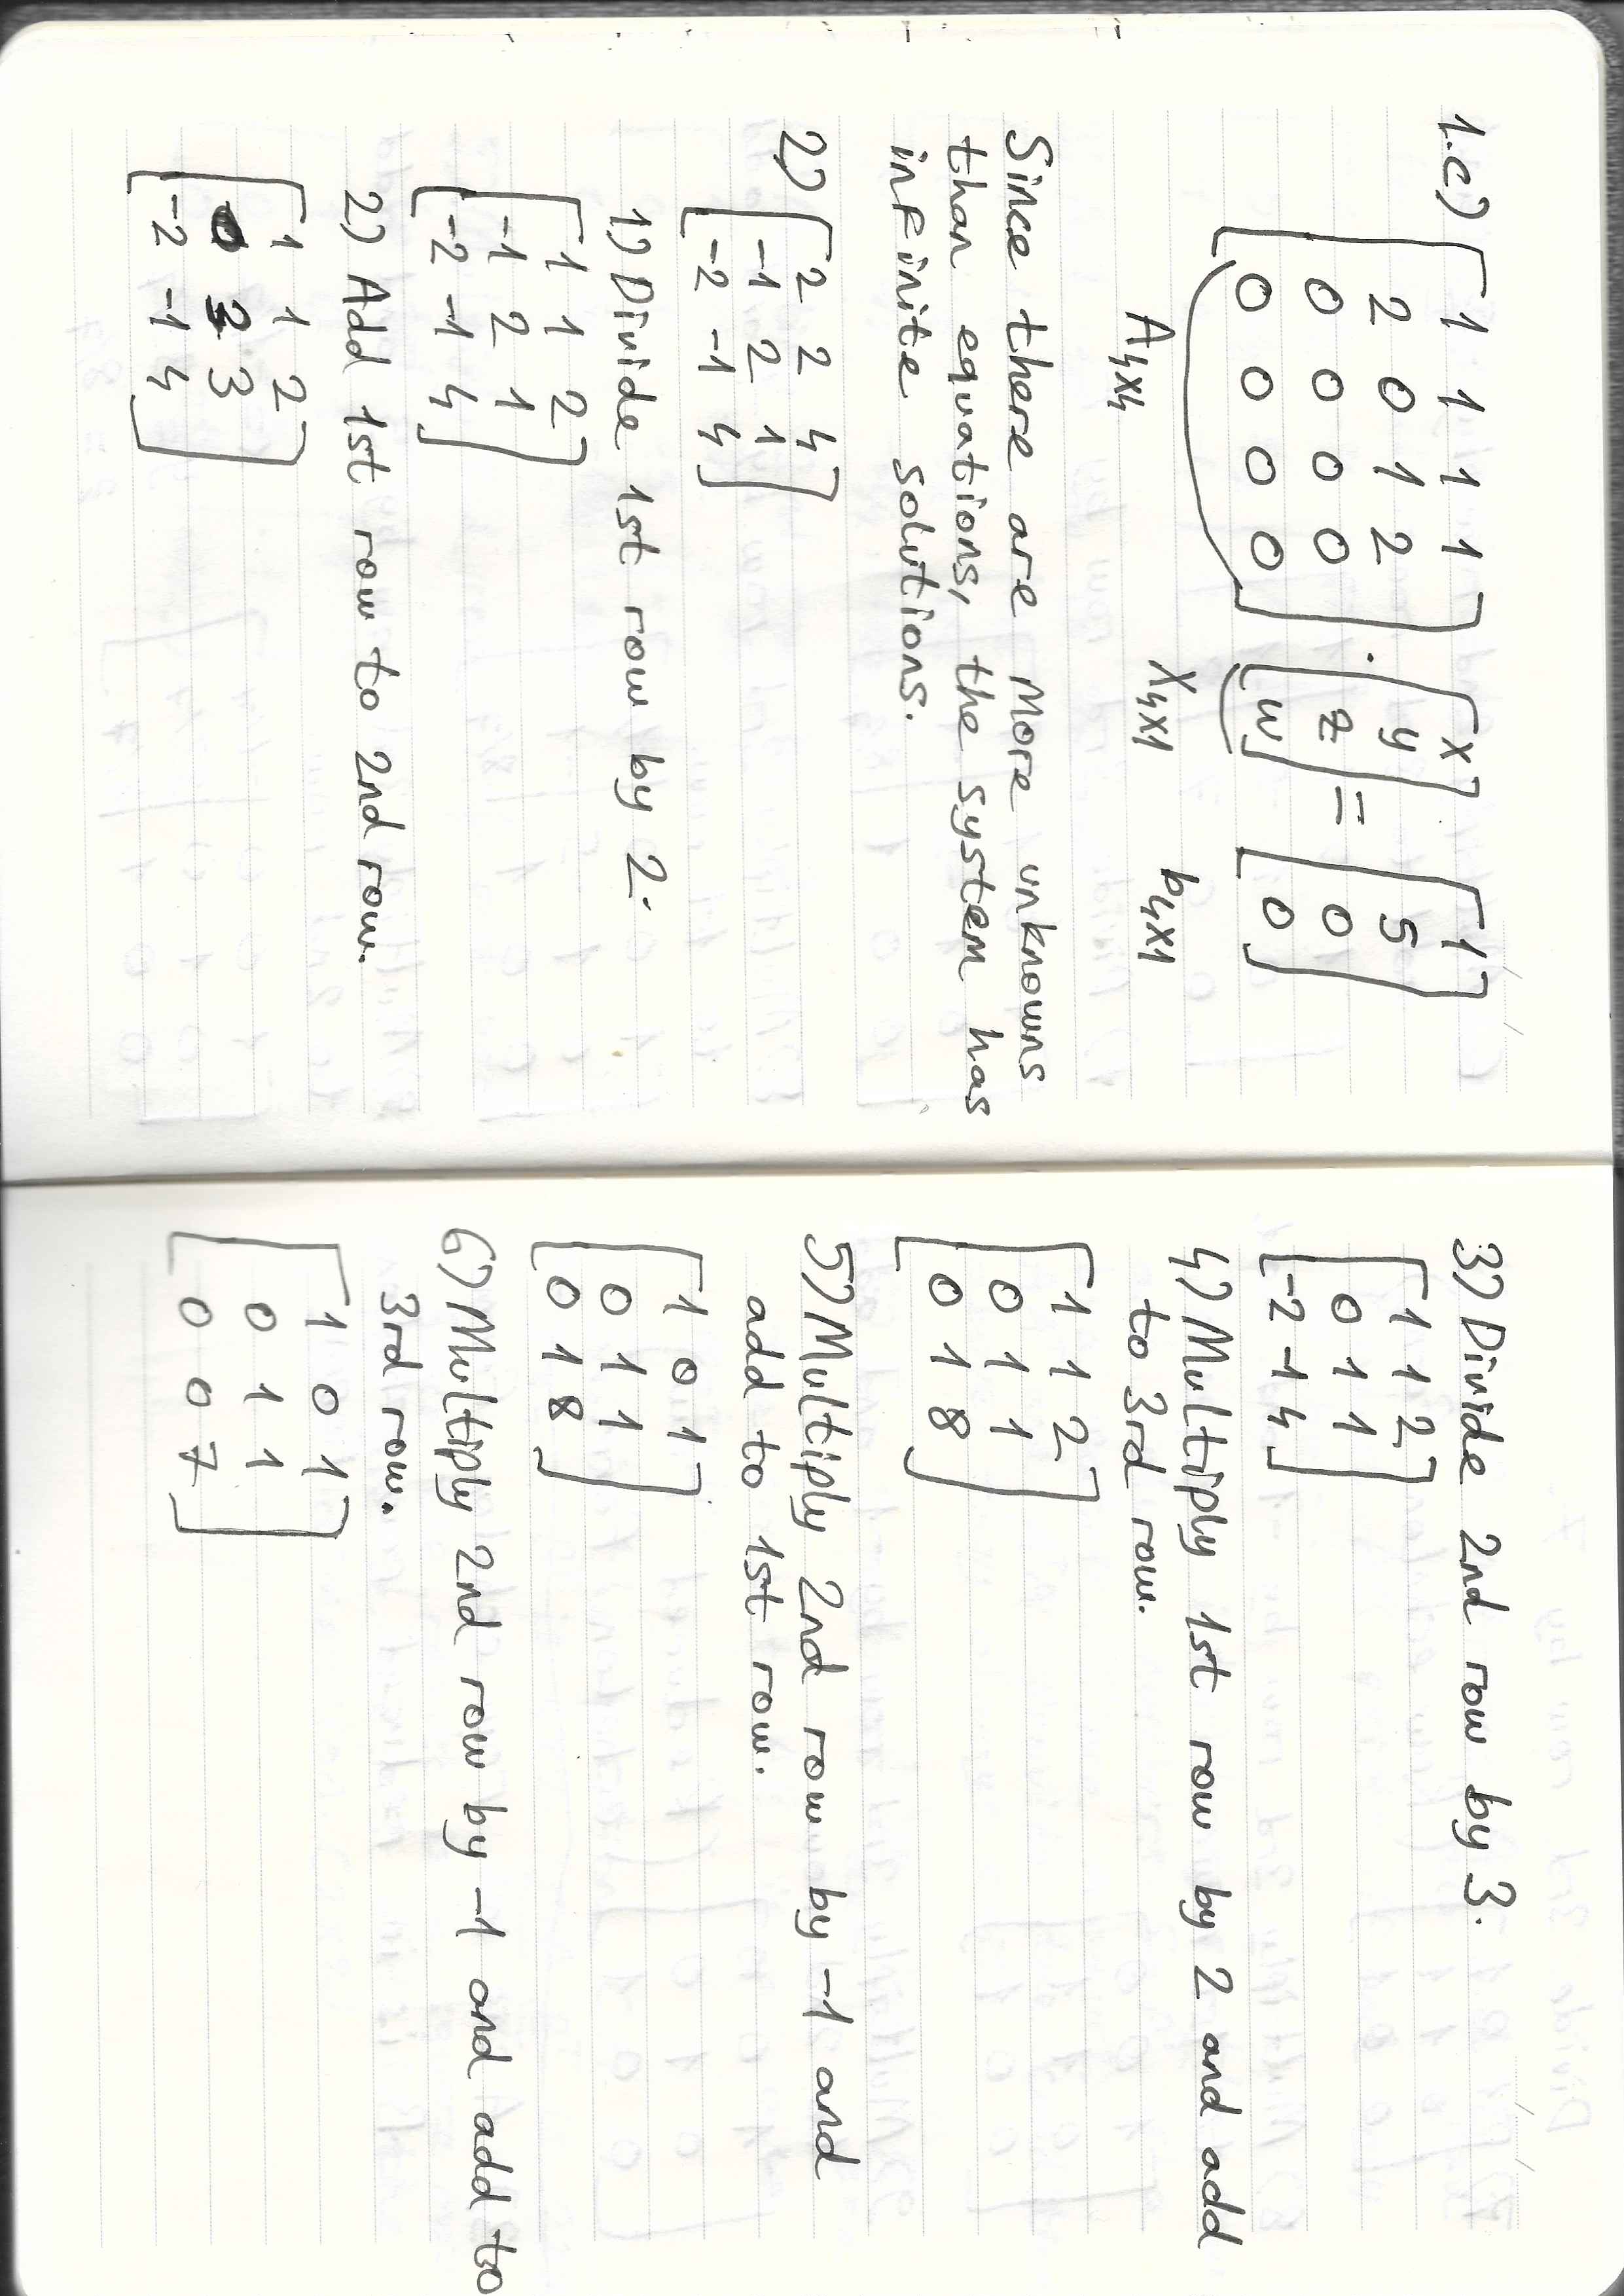 1.c) [1 1 1 1] [x] [1]
[2 0 1 2] [y] [5]
[0 0 0 0] · [z] = [0]
[0 0 0 0] [w] [0]
A4x4 X4x1 b4x1
Since there are more unknowns
than equations, the system has
infinite solutions.
2) [2 2 4]
[-1 2 1]
[-2 -1 4]
1) Divide 1st row by 2.
[1 1 2]
[-1 2 1]
[-2 -1 4]
2) Add 1st row to 2nd row.
[1 1 2]
[0 3 3]
[-2 -1 4]
3) Divide 2nd row by 3.
[1 1 2]
[0 1 1]
[-2 -1 4]
4) Multiply 1st row by 2 and add
to 3rd row.
[1 1 2]
[0 1 1]
[0 1 8]
5) Multiply 2nd row by -1 and
add to 1st row.
[1 0 1]
[0 1 1]
[0 1 8]
6) Multiply 2nd row by -1 and add to
3rd row.
[1 0 1]
[0 1 1]
[0 0 7]